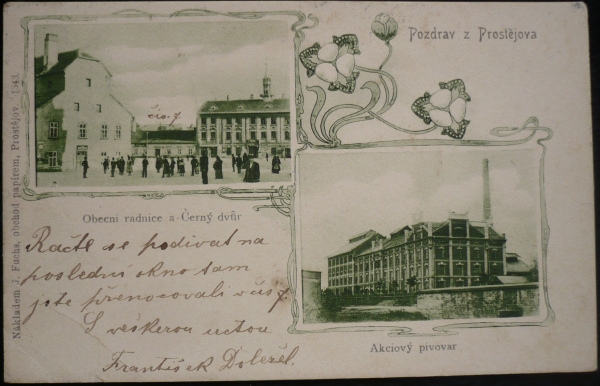 Pozdrav z Prostějova
čís. 7
Obecní radnice a Černý dvůr
Račte se podívat na
poslední okno tam
jste přenocovali v čís 7
S veškerou úctou
František Doležel.
Akciový pivovar
Nákladem J. Fuchs, obchod papírem, Prostějov. 1343.